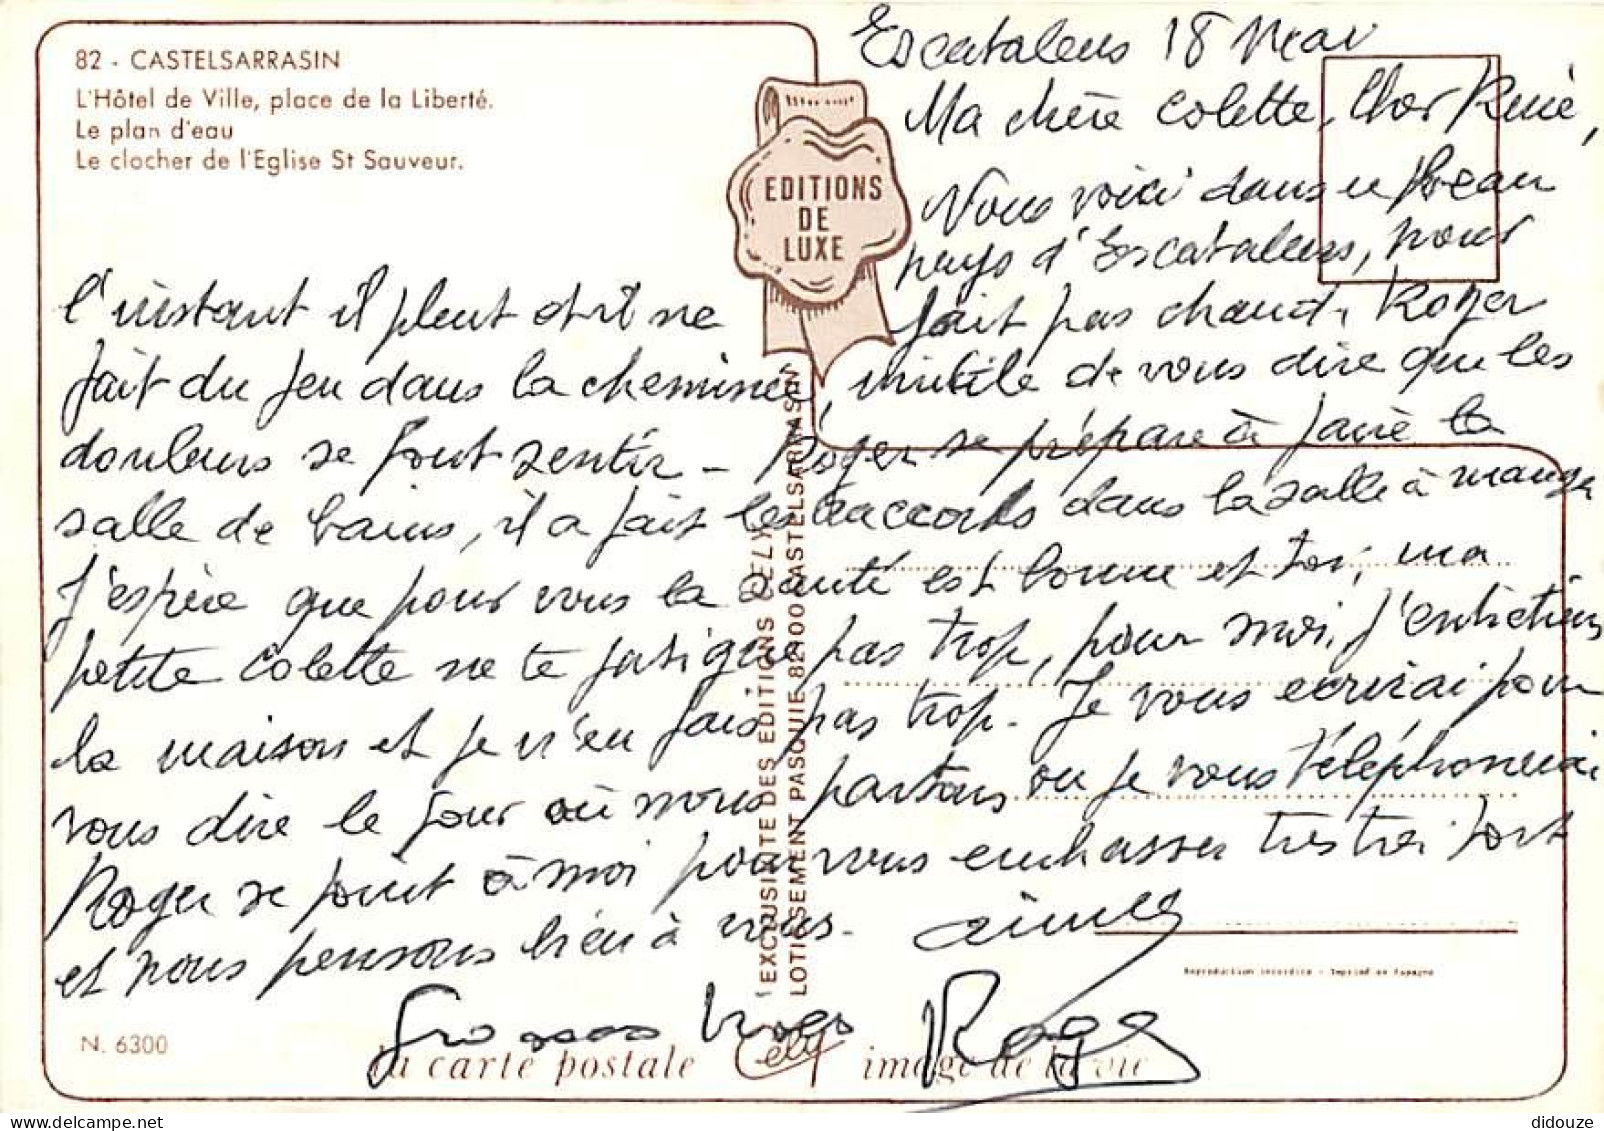 82 - CASTELSARRASIN
L'Hôtel de Ville, place de la Liberté.
Le plan d'eau
Le clocher de l'Eglise St Sauveur.
EDITIONS
DE
LUXE
Escatalens 18 Mai
Ma chère Colette, Cher René,
Nous voici dans ce beau
pays d'Escatalens, pour
l'instant il pleut et il ne fait pas chaud, Roger
fait du feu dans la cheminée, inutile de vous dire que les
douleurs se font sentir - Roger se prépare à faire la
salle de bains, il a fait les raccords dans la salle à manger
J'espère que pour vous la santé est bonne et toi, ma
petite Colette ne te fatigue pas trop, pour moi, j'entretiens
la maison et je n'en fais pas trop. Je vous écrirai pour
vous dire le jour où nous partons ou je vous téléphonerai
Roger se joint à moi pour vous embrasser très très fort
et nous pensons bien à vous.
Grosses bises Roger
EXCLUSIVITE DES EDITIONS CELY
LOTISSEMENT PASQUIE 82100 CASTELSARRASIN
Reproduction interdite - Imprimé en Espagne
N. 6300
la carte postale Cély image de la vie
didouze